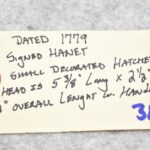 DATED 1779
SIGNED HANET
SMALL DECORATED HATCHET
HEAD IS 5 3/8" LONG X 2 1/2"
" OVERALL LENGHT W. HAND